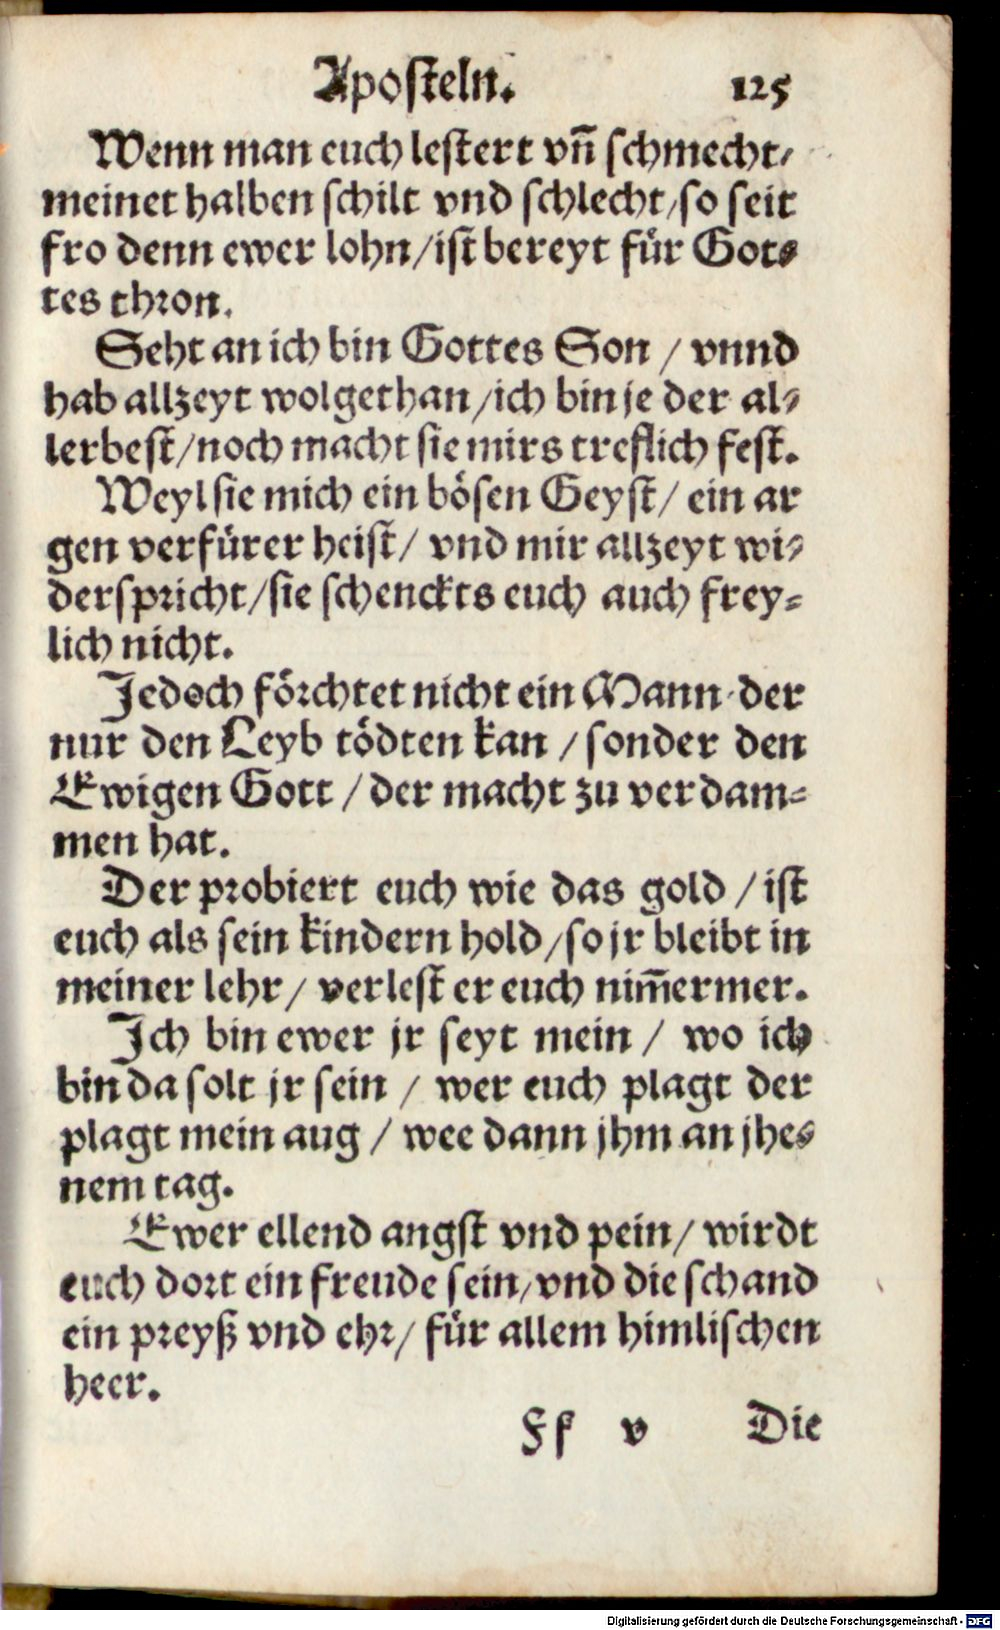 Aposteln. 125
Wenn man euch lestert vñ schmecht/
meinet halben schilt vnd schlecht/so seit
fro denn ewer lohn/ist bereyt für Got-
tes thron.
Seht an ich bin Gottes Son / vnnd
hab allzeyt wolgethan/ich bin je der al-
lerbest/noch macht sie mirs treflich fest.
Weyl sie mich ein bösen Geyst/ ein ar
gen verfürer heist/ vnd mir allzeyt wi-
derspricht/sie schenckts euch auch frey-
lich nicht.
Jedoch förchtet nicht ein Mann der
nur den Leyb tödten kan / sonder den
Ewigen Gott / der macht zu verdam-
men hat.
Der probiert euch wie das gold / ist
euch als sein kindern hold/so jr bleibt in
meiner lehr/ verlest er euch nim̃ermer.
Ich bin ewer jr seyt mein / wo ich
bin da solt jr sein / wer euch plagt der
plagt mein aug / wee dann jhm an jhe-
nem tag.
Ewer ellend angst vnd pein/ wirdt
euch dort ein freude sein/vnd die schand
ein preyß vnd ehr/ für allem himlischen
heer.
Ff v Die
Digitalisierung gefördert durch die Deutsche Forschungsgemeinschaft - DFG